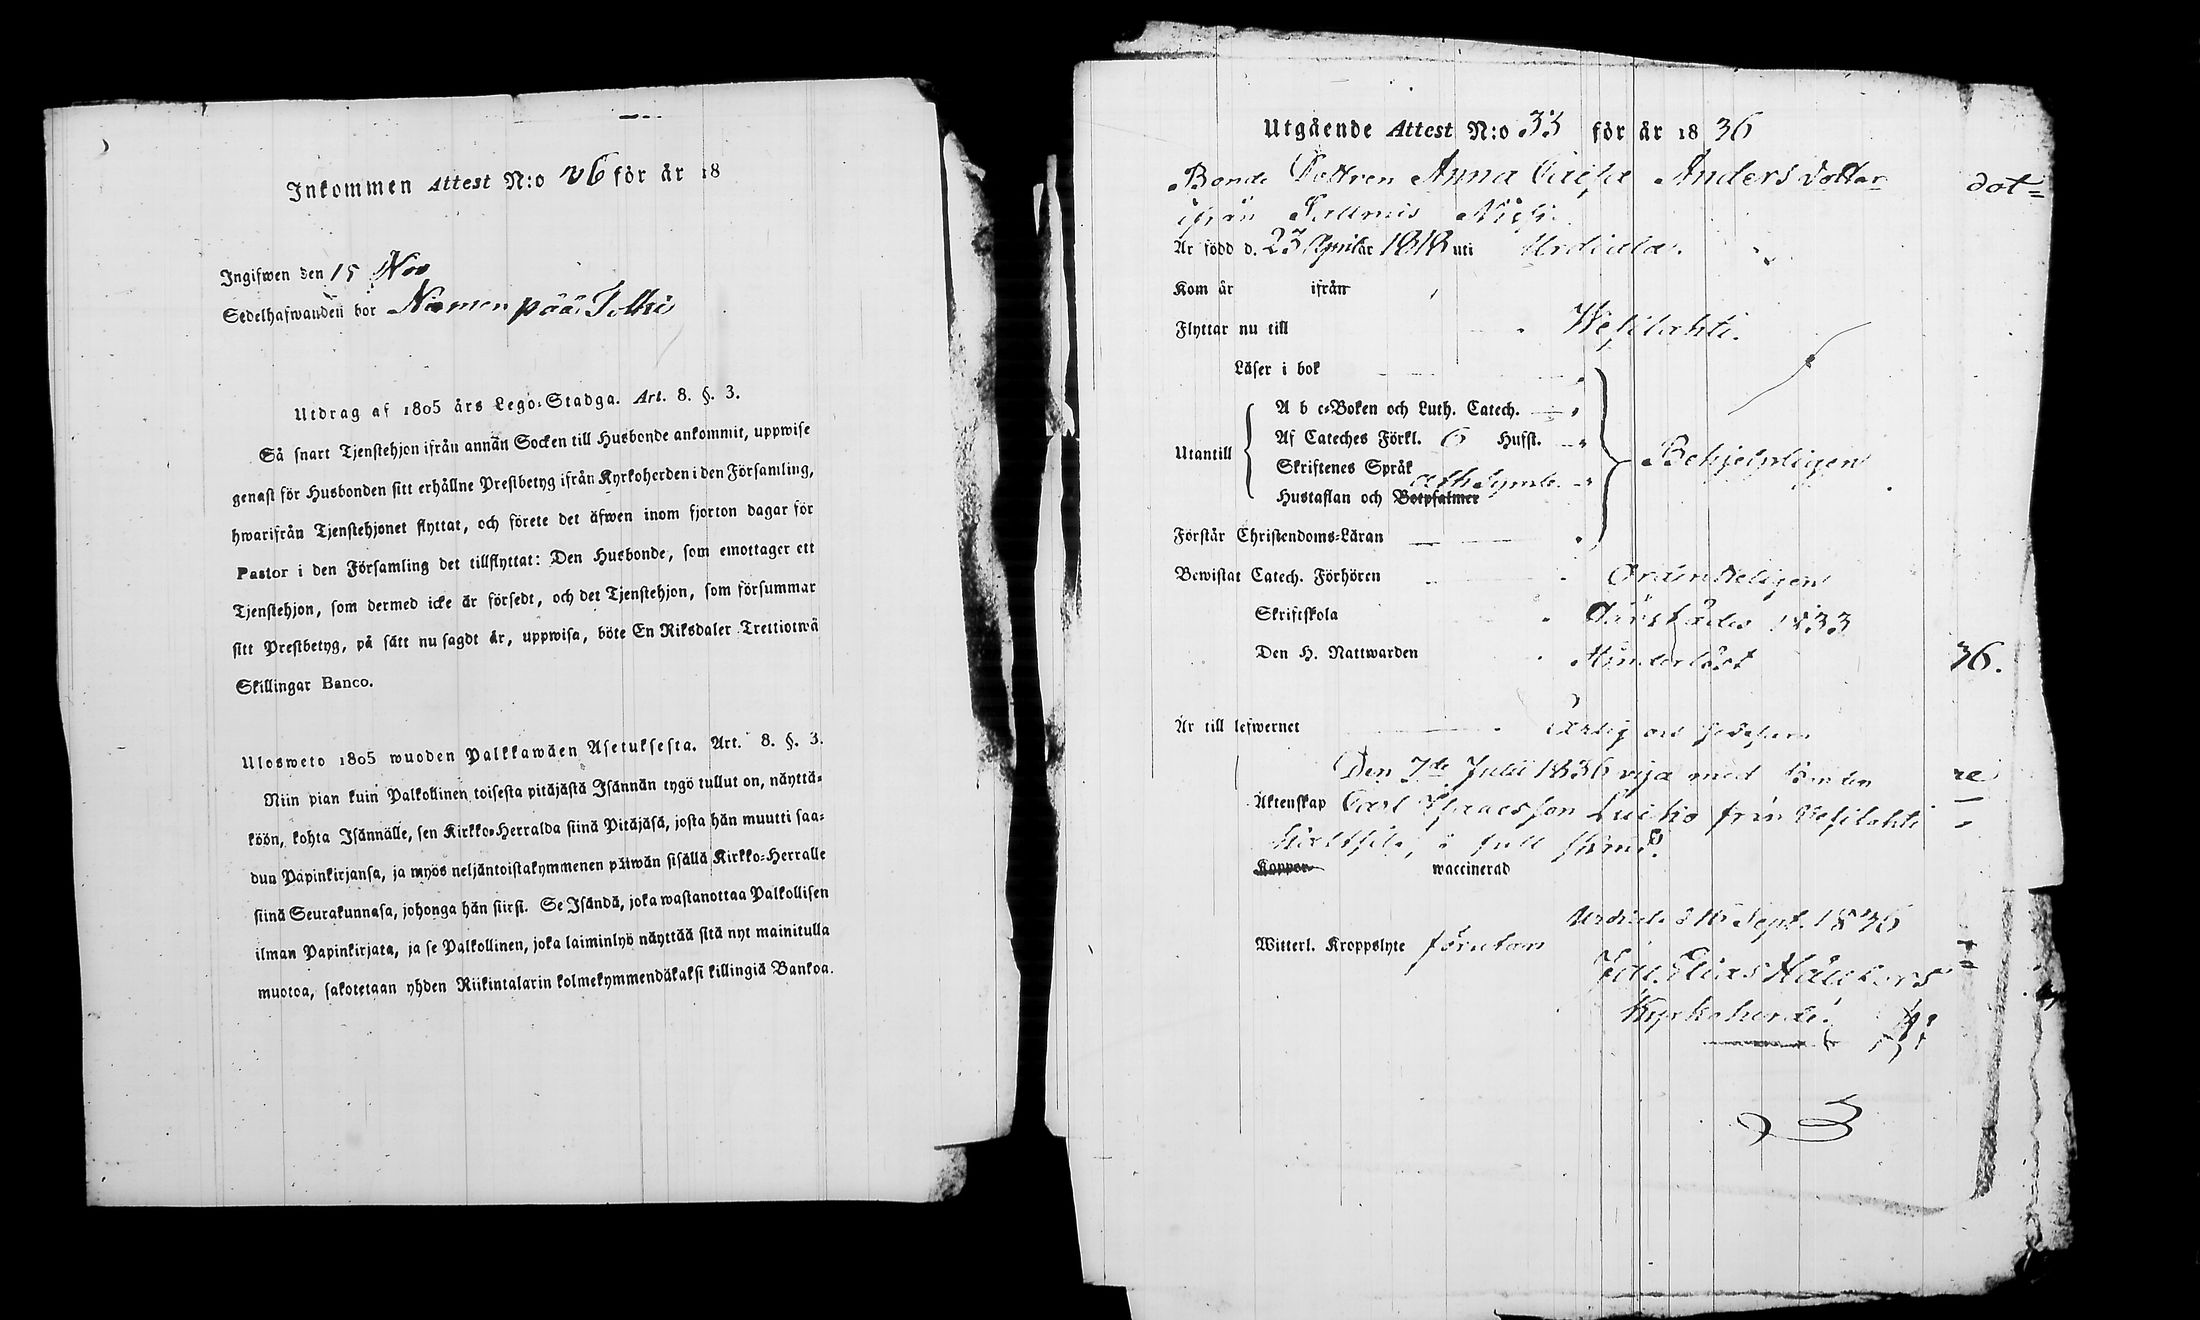 Inkommen Attest N:o 26 för år 18
Ingifwen den 15 Nov
Sedelhafwanden bor Niemenpää
Utdrag af 1805 års Lego-Stadga. Art. 8. §. 3.
Så snart Tjenstehjon ifrån annan Socken till Husbonde ankommit, uppwise
genast för Husbonden sitt erhållne Prestbetyg ifrån Kyrkoherden i den Församling,
hwarifrån Tjenstehjonet flyttat, och förete det äfwen inom fjorton dagar för
Pastor i den Församling det tillflyttat: Den Husbonde, som emottager ett
Tjenstehjon, som dermed icke är försedt, och det Tjenstehjon, som försummar
sitt Prestbetyg, på sätt nu sagdt är, uppwisa, böte En Riksdaler Trettiotwå
Skillingar Banco.
Ulosweto 1805 wuoden Palkkawäen Asetuksesta. Art. 8. §. 3.
Niin pian kuin Palkollinen toisesta pitäjästä Isännän tygö tullut on, näyttä-
köön, kohta Isännälle, sen Kirkko-Herralda siinä Pitäjäsä, josta hän muutti saa-
dun Papinkirjansa, ja myös neljäntoistakymmenen päiwän sisällä Kirkko-Herralle
siinä Seurakunnasa, johonga hän siirsi. Se Isändä, joka wastanottaa Palkollisen
ilman Papinkirjata, ja se Palkollinen, joka laiminlyö näyttää sitä nyt mainitulla
muotoa, sakotetaan yhden Riikintalarin kolmekymmendäkaksi killingiä Bankoa.
Utgående Attest N:o 33 för år 1836
Bonde Dottren Anna Caisa Anders dotter
ifrån
dot=
Är född d. 23 April år 1818 uti Urdiala.
Kom år ifrån
Flyttar nu till Wesilahti.
Läser i bok
A b c-Boken och Luth. Catech.
Af Cateches Förkl. 6 Hufst.
Utantill
Skriftenes Språk
Ath Symb.
Hustaflan och Botpsalmer
Behjelpligen
Förstår Christendoms-Läran
Bewistat Catech. Förhören Ordenteligen
Skriftskola 1833
Den H. Nattwarden
36.
Är till lefwernet Ärlig och
Den 7de Julii 1836 vigd med Bonden
Äktenskap Carl Isaacsson från Vesilahti
Koppor waccinerad
Urdiala d 16 Sept. 1836
Witterl. Kroppslyte förutan
Kyrkoherde.